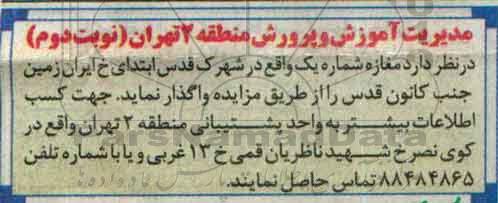 مدیریت آموزش و پرورش منطقه ۲ تهران (نوبت دوم)
در نظر دارد مغازه شماره یک واقع در شهرک قدس ابتدای خ ایران زمین
جنب کانون قدس را از طریق مزایده واگذار نماید. جهت کسب
اطلاعات بیشتر به واحد پشتیبانی منطقه ۲ تهران واقع در
کوی نصر خ شهید ناظریان قمی خ ۱۳ غربی و یا با شماره تلفن
۸۸۴۸۴۸۶۵ تماس حاصل نمایند.